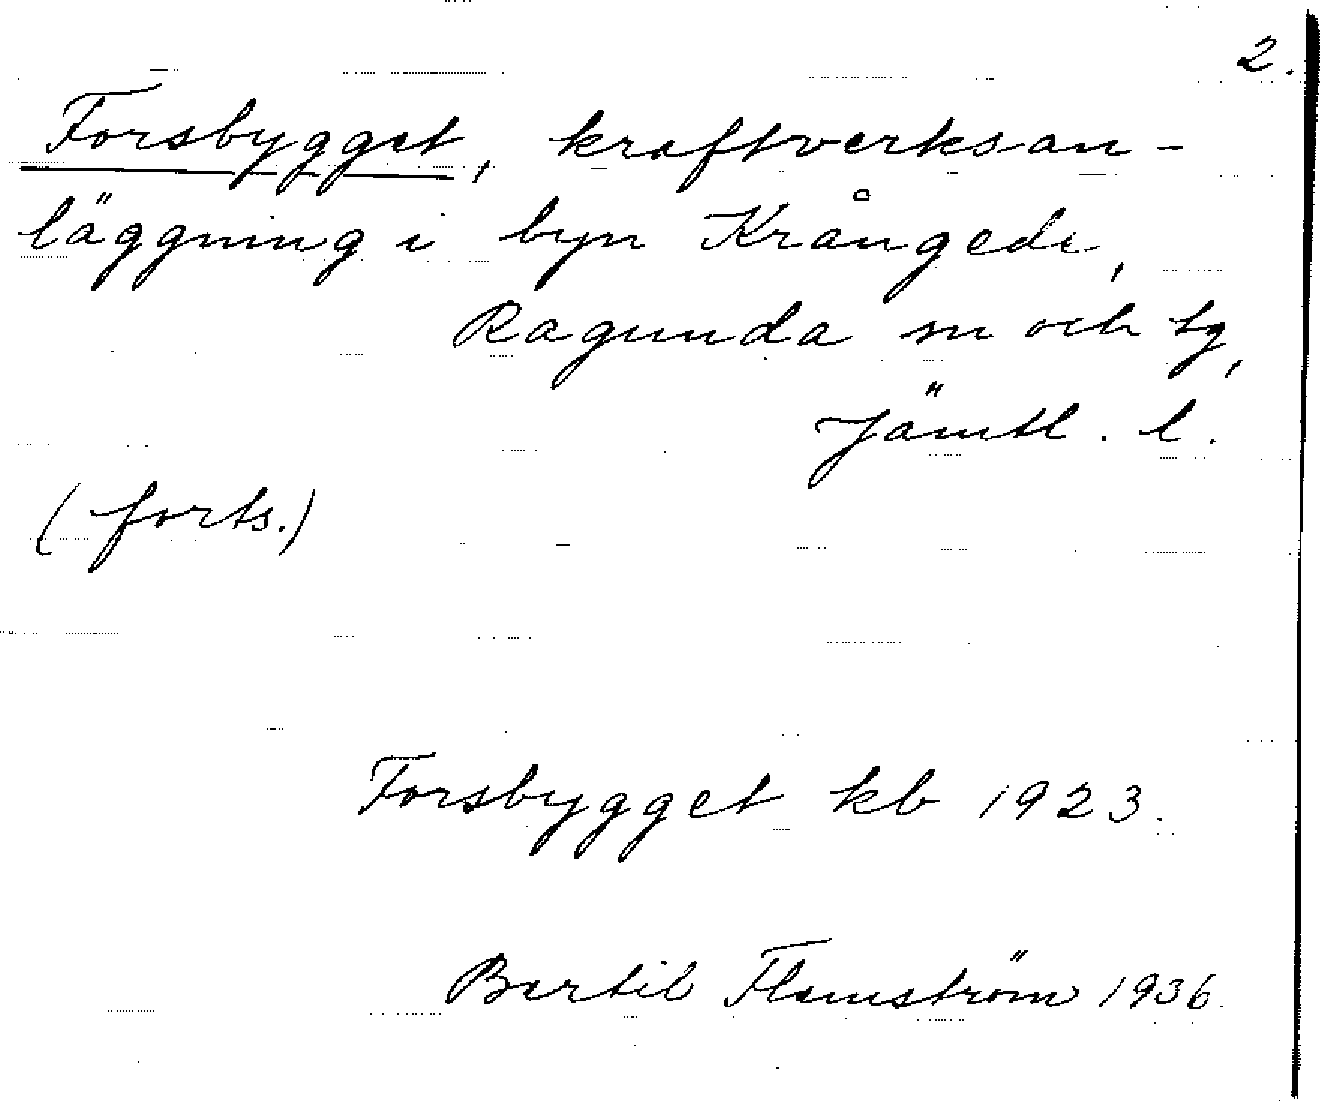 2.
Forsbygget, kraftverksan-
läggning i byn Krångede,
Ragunda sn och tg,
Jämtl. l.
(forts.)
Forsbygget kb 1923.
Bertil Flemström 1936.